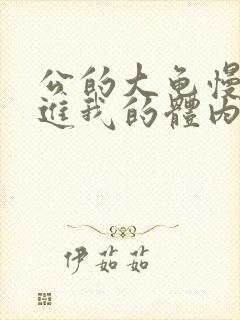 公的大龟慢
進我的體内
伊茹茹